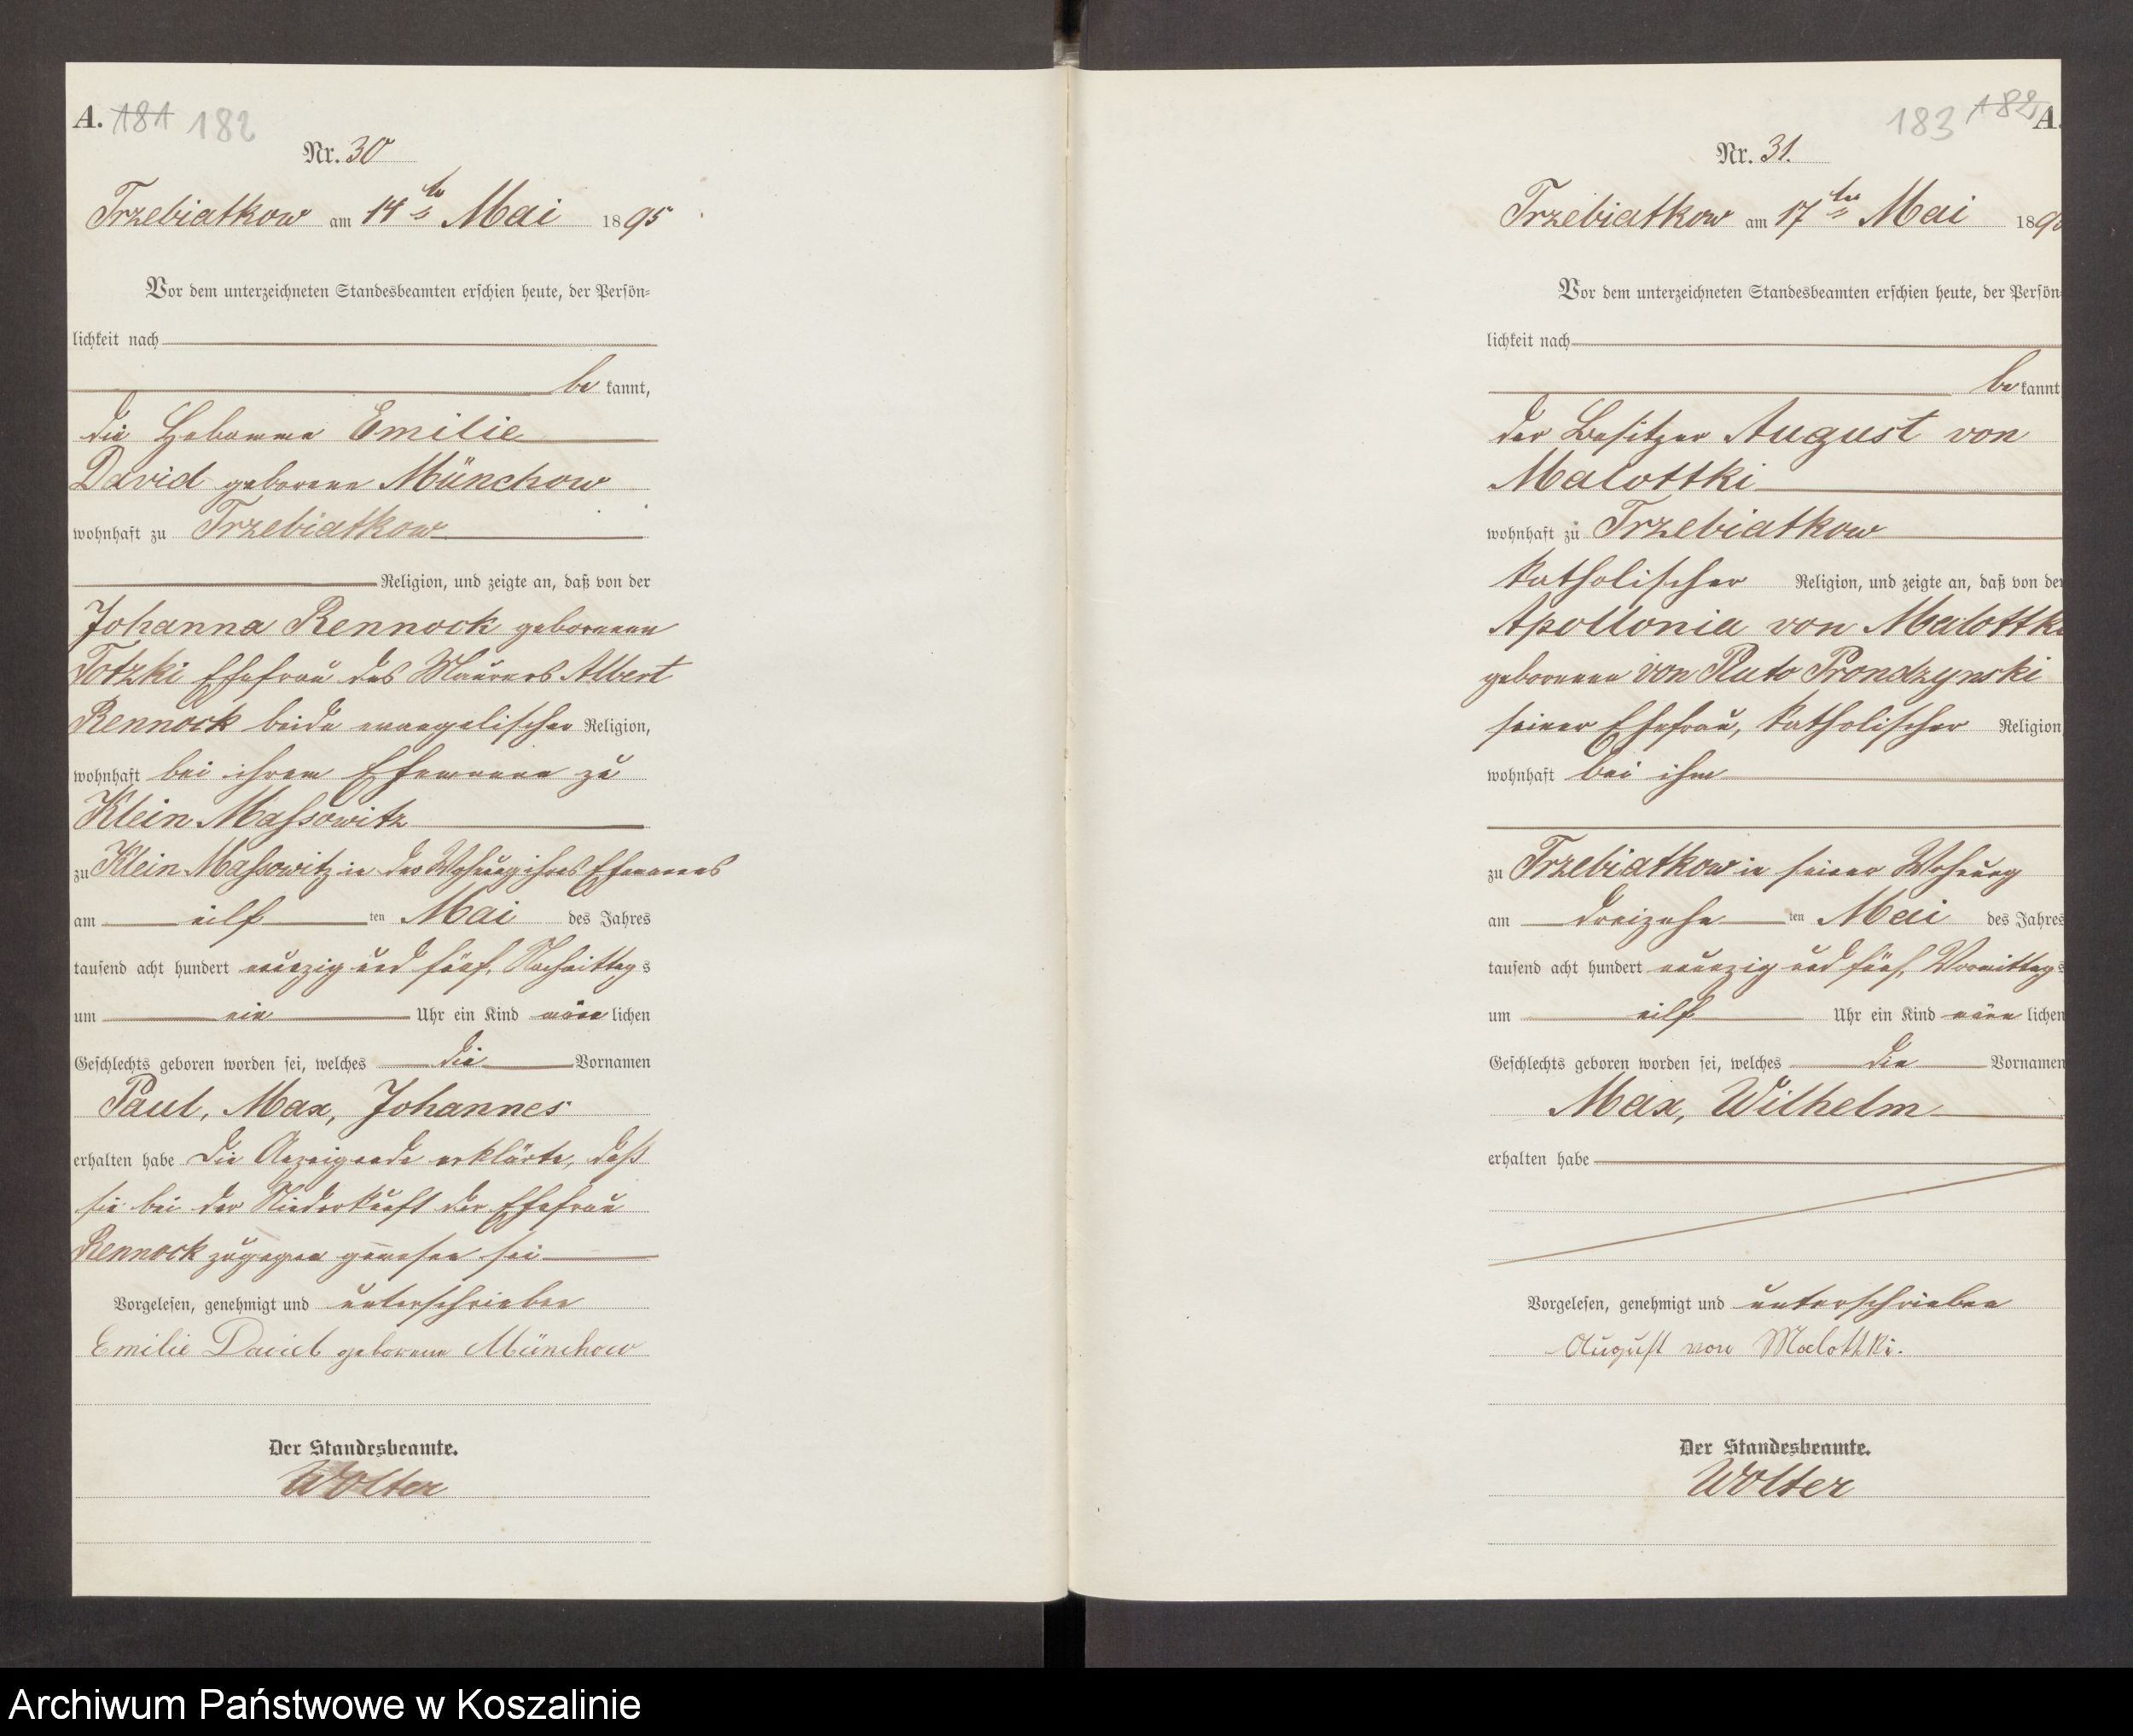 A. 181 182
Nr. 30
Trzebiatkow am 14ten Mai 1895
Vor dem unterzeichneten Standesbeamten erschien heute, der Persön-
lichkeit nach
be kannt,
die Hebamme Emilie
David geborene Münchow
wohnhaft zu Trzebiatkow
Religion, und zeigte an, daß von der
Johanna Rennock geborenen
Totzki Ehefrau des Maurers Albert
Rennock beide evangelischer Religion,
wohnhaft bei ihrem Ehemanne zu
Klein Massowitz
zu Klein Massowitz in der Wohnung ihres Ehemannes
am eilf ten Mai des Jahres
tausend acht hundert neunzig und fünf, Nachmittags
um ein Uhr ein Kind männ lichen
Geschlechts geboren worden sei, welches die Vornamen
Paul, Max, Johannes
erhalten habe Die Anzeigende erklärte, daß
sie bei der Niederkunft der Ehefrau
Rennock zugegen gewesen sei
Vorgelesen, genehmigt und unterschrieben
Emilie David geborene Münchow
Der Standesbeamte.
Wolter
183 182 A.
Nr. 31.
Trzebiatkow am 17ten Mai 189
Vor dem unterzeichneten Standesbeamten erschien heute, der Persön-
lichkeit nach
be kannt
der Besitzer August von
Malottki
wohnhaft zu Trzebiatkow
katholischer Religion, und zeigte an, daß von der
Apollonia von Malottki
geborenen von Pluto Prondzynski
seiner Ehefrau, katholischer Religion
wohnhaft bei ihm
zu Trzebiatkow in seiner Wohnung
am dreizehn ten Mai des Jahres
tausend acht hundert neunzig und fünf, Vormittags
um eilf Uhr ein Kind männ lichen
Geschlechts geboren worden sei, welches die Vornamen
Max, Wilhelm
erhalten habe
Vorgelesen, genehmigt und unterschrieben
August von Malottki.
Der Standesbeamte.
Wolter
Archiwum Państwowe w Koszalinie